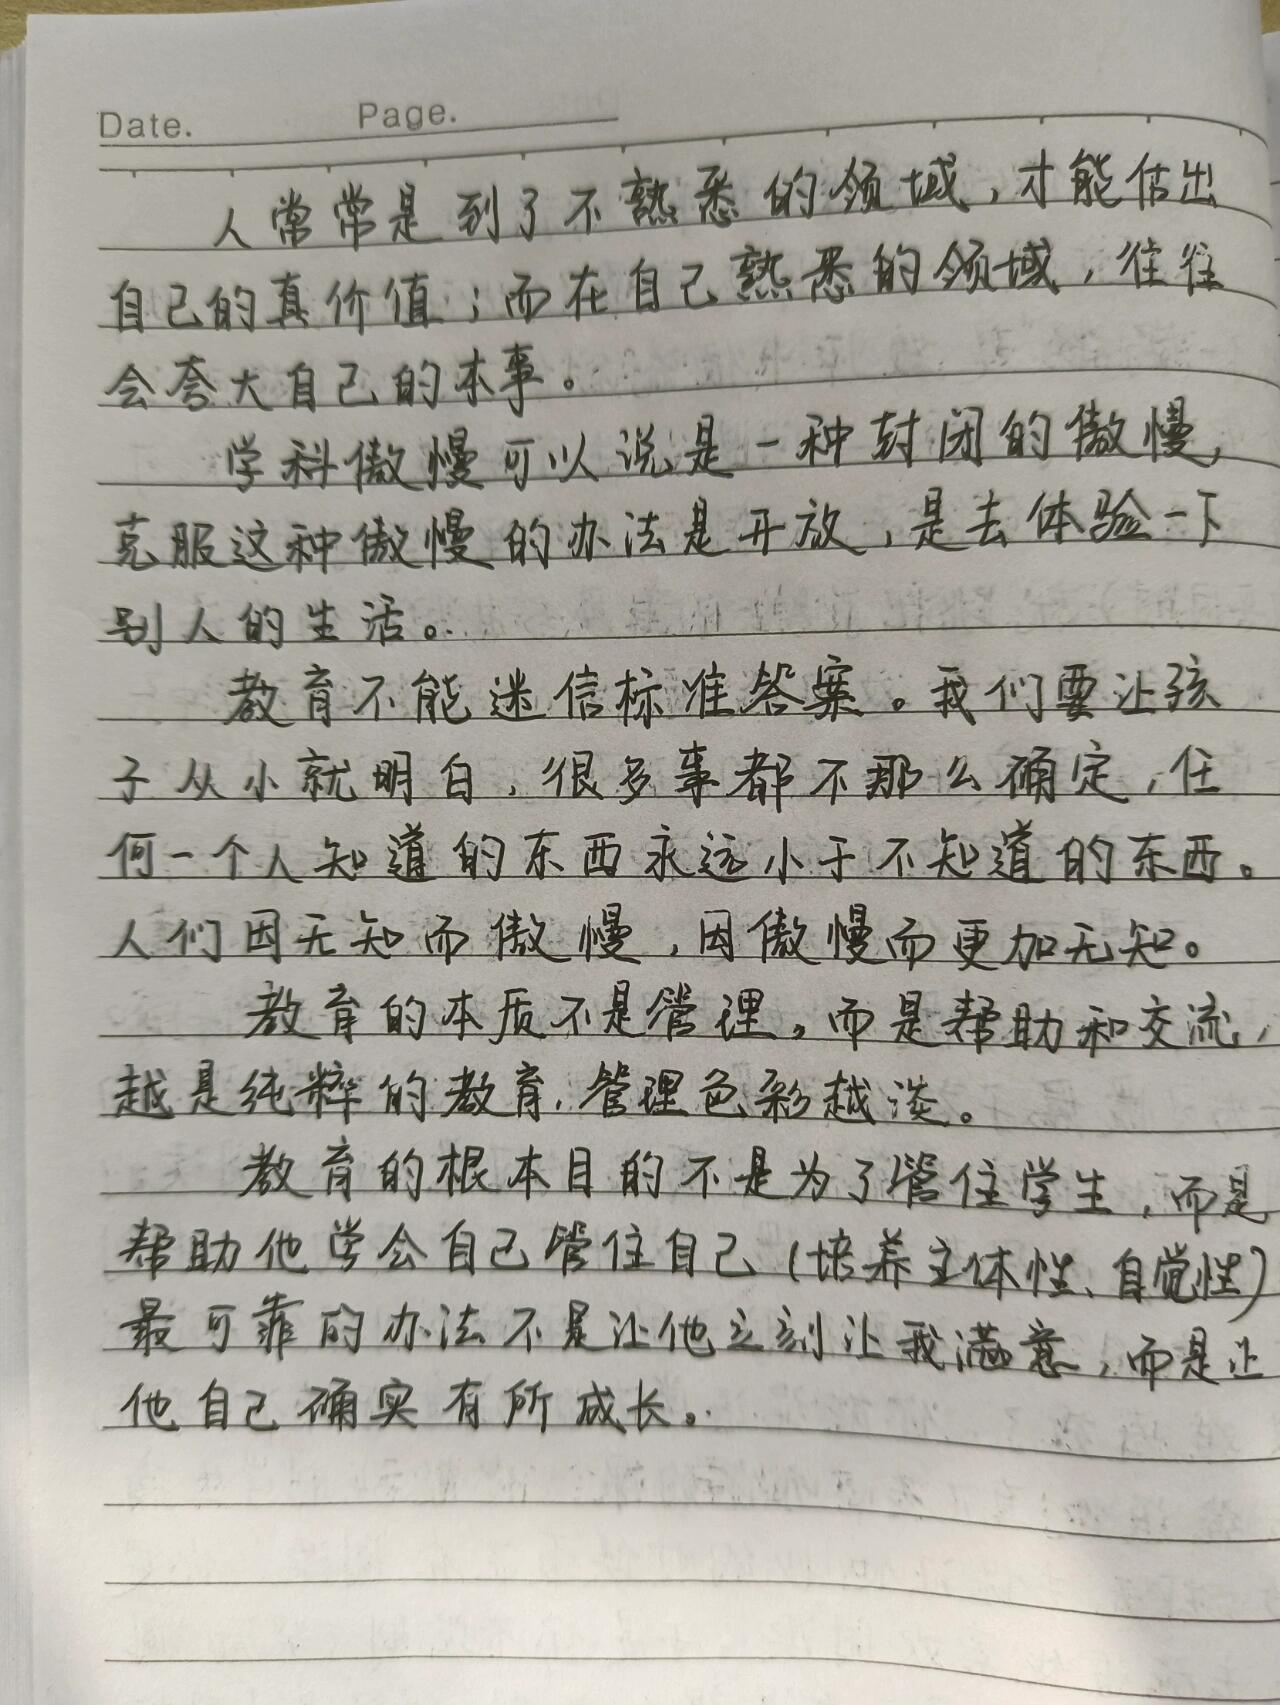 Date. Page.
人常常是到了不熟悉的领域，才能估出
自己的真价值；而在自己熟悉的领域，往往
会夸大自己的本事。
学科傲慢可以说是一种封闭的傲慢，
克服这种傲慢的办法是开放，是去体验一下
别人的生活。
教育不能迷信标准答案。我们要让孩
子从小就明白，很多事都不那么确定，任
何一个人知道的东西永远小于不知道的东西。
人们因无知而傲慢，因傲慢而更加无知。
教育的本质不是管理，而是帮助和交流，
越是纯粹的教育，管理色彩越淡。
教育的根本目的不是为了管住学生，而是
帮助他学会自己管住自己（培养主体性、自觉性）
最可靠的办法不是让他立刻让我满意，而是让
他自己确实有所成长。